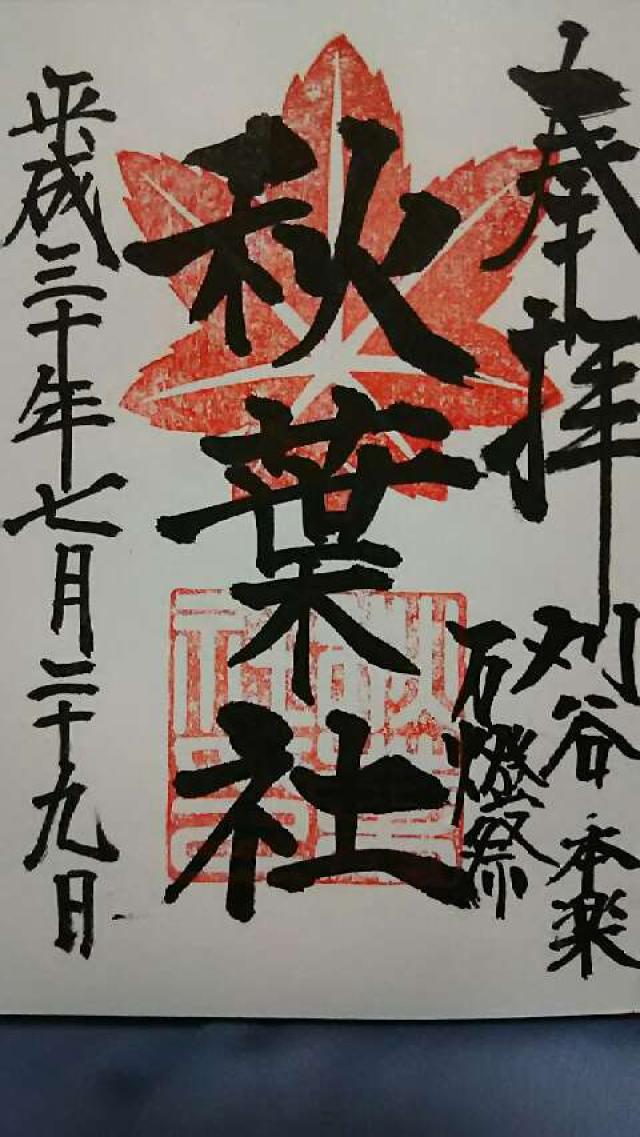 奉拝
刈谷 本楽
万燈祭
秋葉社
平成三十年七月二十九日